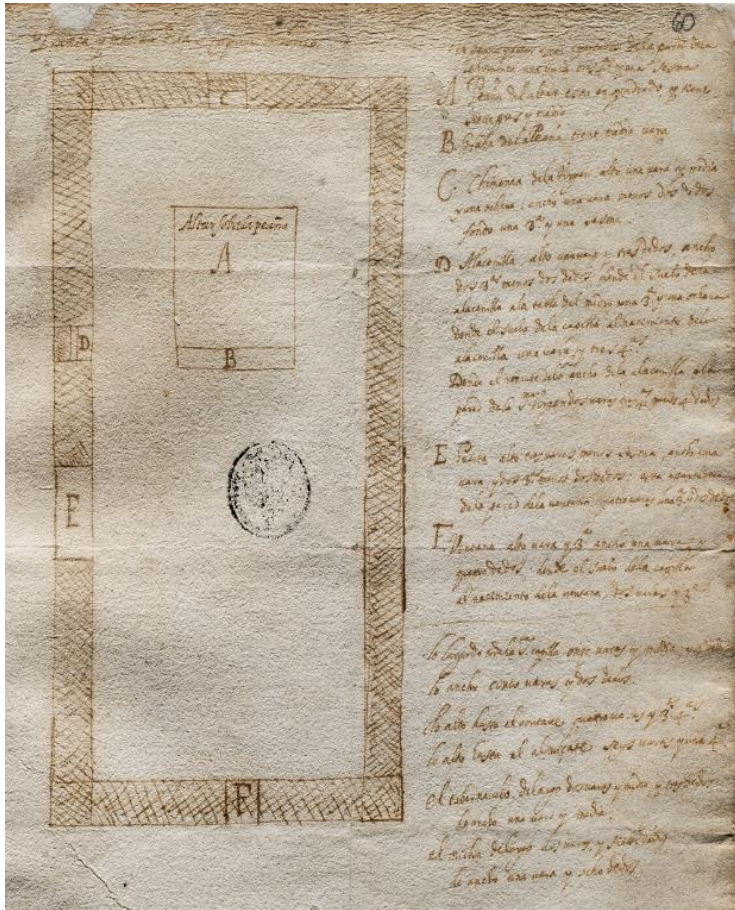 60
Planta y medida de la
C
Altar sobre la peaña
A
B
D
E
F
A Peaña del altar esta en quadrado y tiene
pies y medio
B. Grada de la Peaña tiene media vara
C. Chimenea de la Virgen alto una vara y media
y una ochava; ancho una vara menos dos dedos
fondo una 3ª y una sesma
D Alacenilla alto una vara y tres dedos, ancho
dos 3ªs menos dos dedos, desde el suelo dela
alacenilla ala una 3ª y una ochava
desde el suelo de la capilla al nacimiento del
alacenilla una vara y tres 4ªs
Desde el ancho dela alacenilla ala
pared dela dos varas menos 4 dedos
E Puerta alto tres varas menos sesma, ancho una
vara y dos 3ªs menos dos dedos; esta apartada
dela pared dela ventana quatro varas una 3ª y dos dedos
F. Ventana alto vara y 3ª ancho una vara
quatro dedos, desde el suelo dela capilla
al nacimiento dela ventana, dos varas y 3ª
lo largo dela sta capilla onze varas y media
lo ancho cinco varas y dos dedos.
lo alto hasta el quatro varas y 3 4ªs
lo alto hasta el almiçate seys varas y una 4ª
el tabernaculo de largo dos varas y media y tres dedos
de ancho una vara y media.
el nicho de largo dos varas, y siete dedos
de ancho una vara y ocho dedos